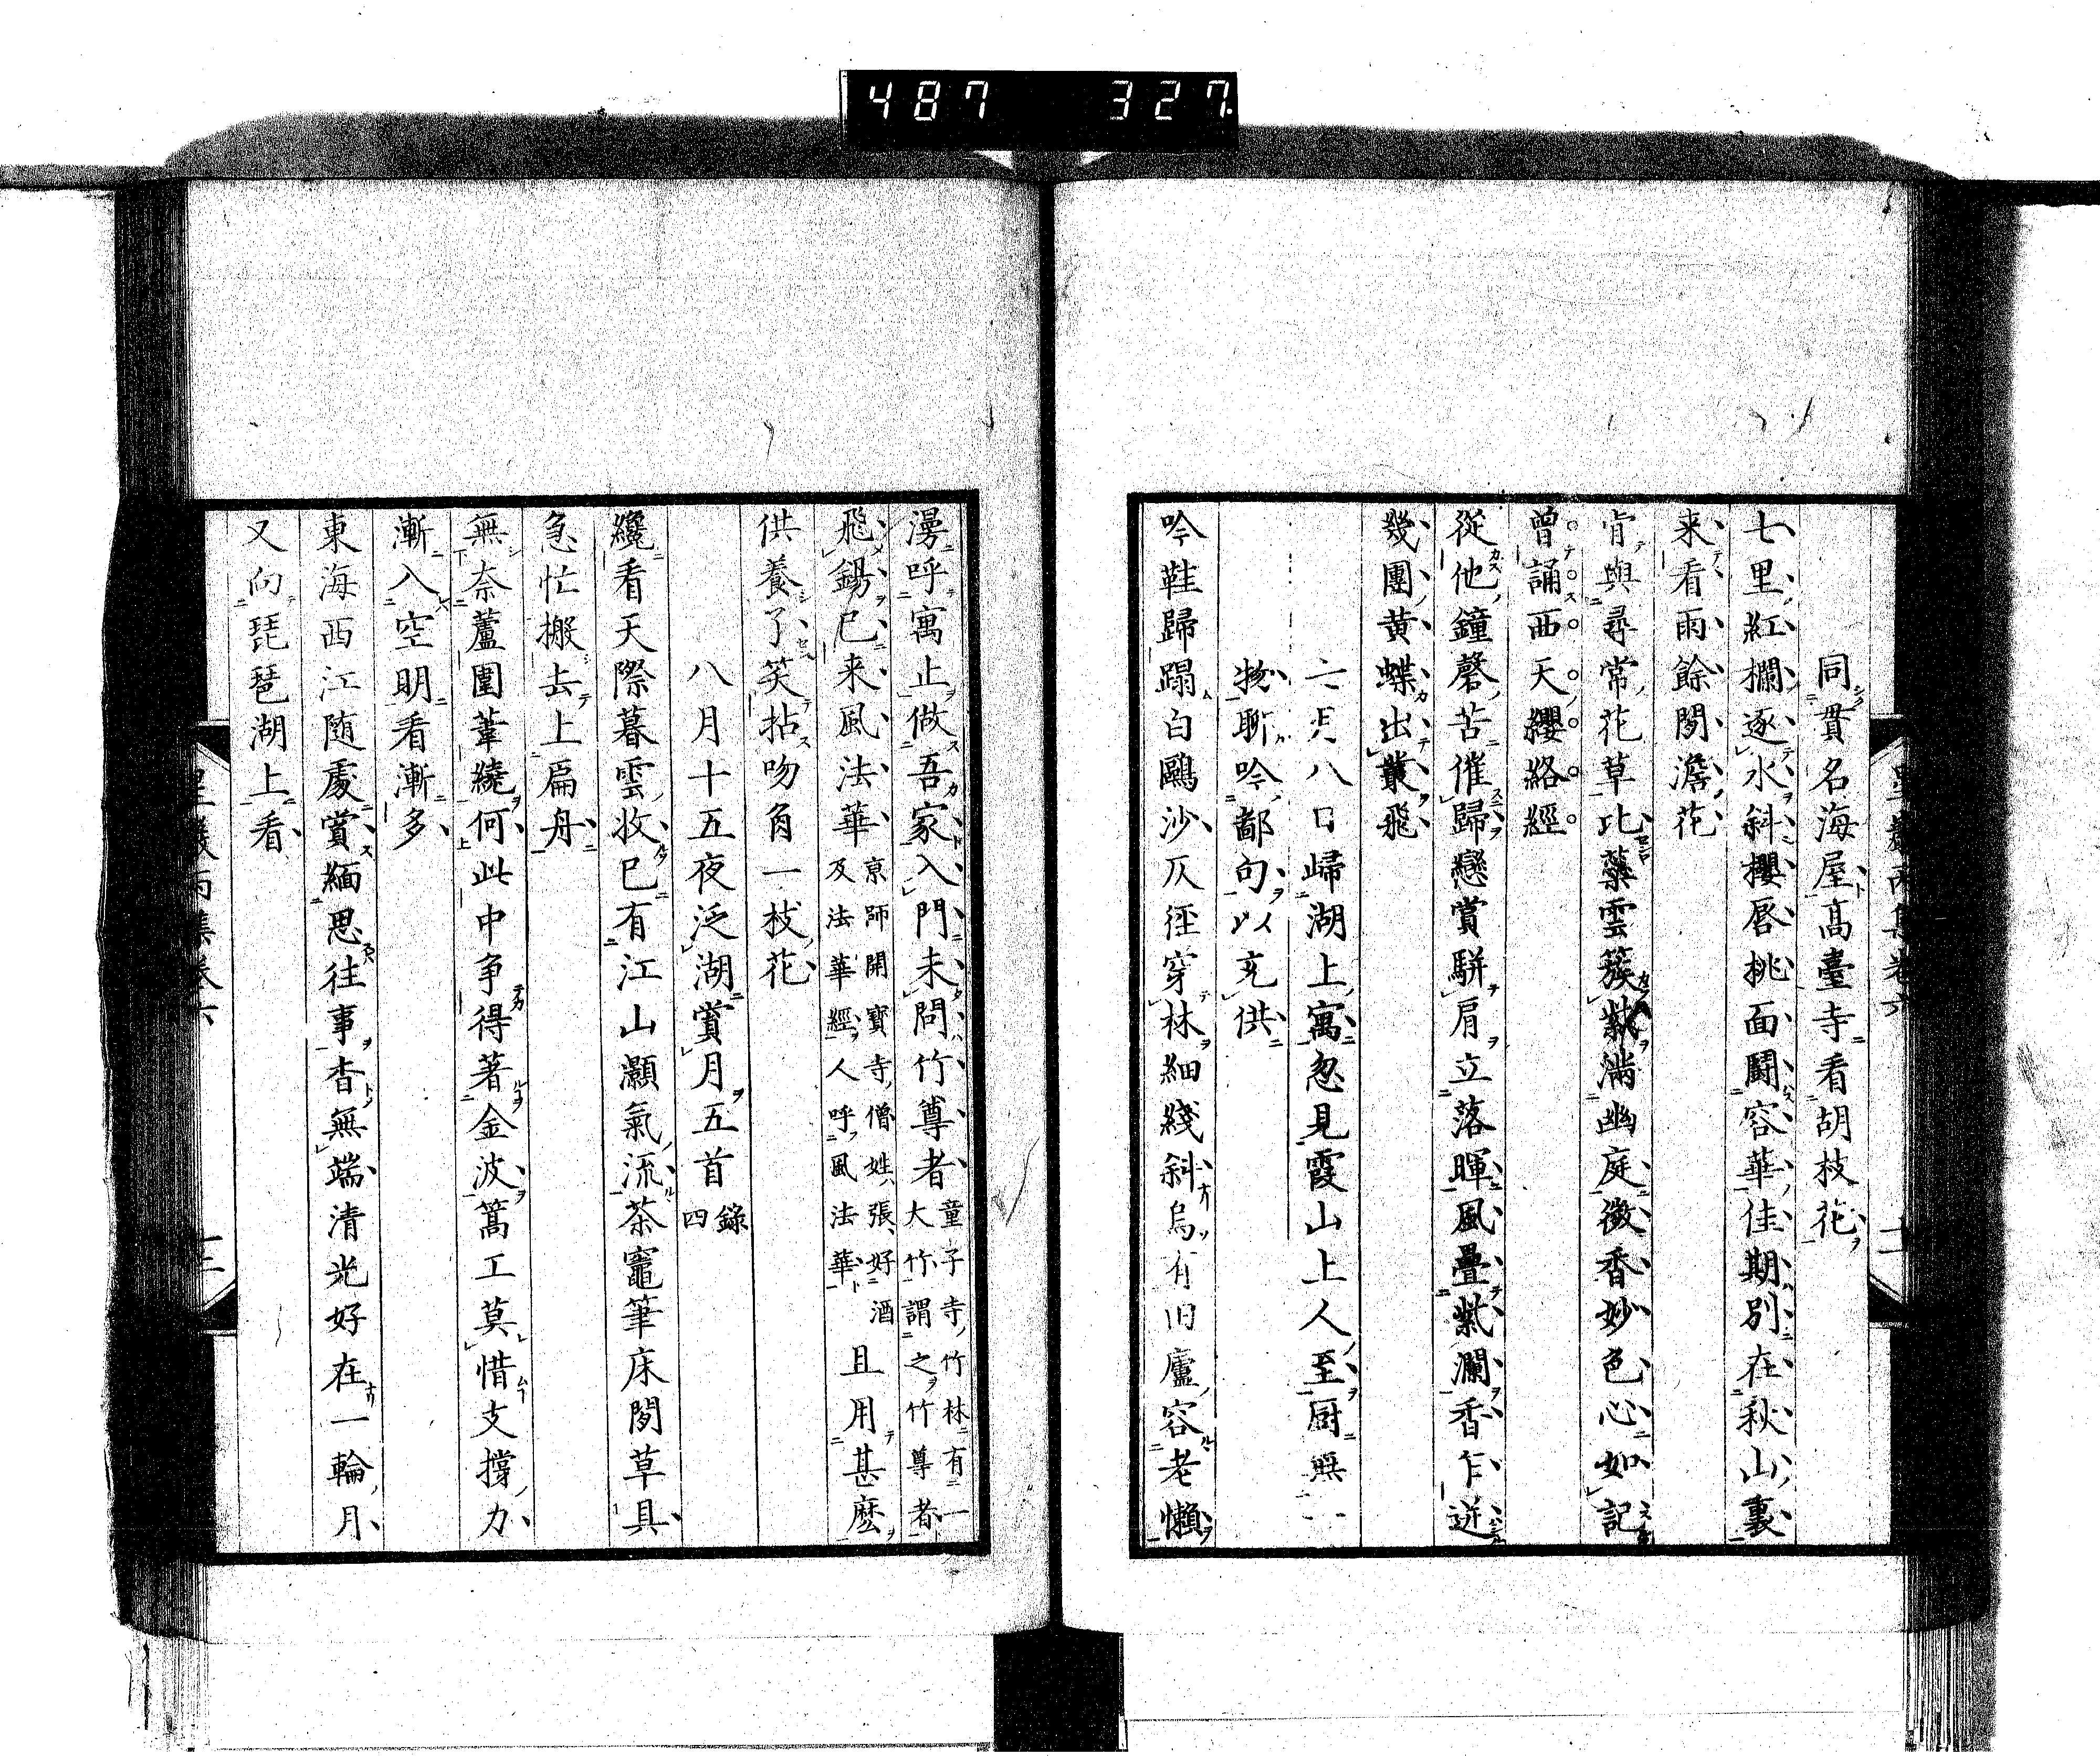 487 327
同貫名海屋高臺寺看胡枝花
七里紅欄逐水斜櫻唇桃面鬪容華佳期別在秋山裏
来看雨餘閒澹花
肯與尋常花草比蘂雲簇紫滿幽庭微香妙色心如記
曾誦西天纓絡經
從他鐘磬苦催歸戀賞駢肩立落暉風疊紫瀾香乍迸
幾團黄蝶出叢飛
六月八日歸湖上寓忽見霞山上人至厨無一
物聊吟鄙句以充供
吟鞋歸蹋白鷗沙仄徑穿林細綫斜烏有旧廬容老懶
漫呼寓止做吾家入門未問竹尊者童子寺竹林有一大竹謂之竹尊者
飛錫已来風法華京師開寳寺僧姓張好酒及法華經人呼風法華且用甚麽
供養了笑拈吻角一枝花
八月十五夜泛湖賞月五首錄四
纔看天際暮雲收已有江山灝氣流茶竈筆床閒草具
急忙搬去上扁舟
無奈蘆圍葦繞何此中争得著金波篙工莫惜支撐力
漸入空明看漸多
東海西江随處賞緬思往事杳無端清光好在一輪月
又向琵琶湖上看